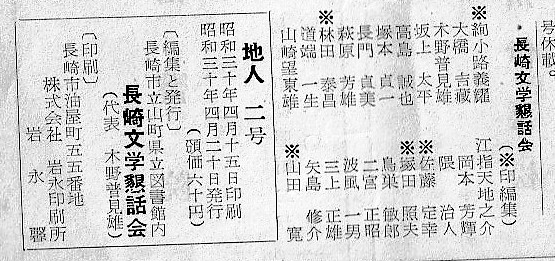 号休載。
長崎文学懇話会
(※印編集)
※絢小路義耀 江指天地之介
大橋吉蔵 岡本芳輝
木野普見雄 隈治人
坂上太平 ※佐藤定幸
高島誠也 ※塚田照夫
塚本貞一 鳥巣敏郎
長門貞美 二宮正昭
萩原芳雄 波風一男
※林田泰昌 三上正雄
道端一生 矢島修介
山崎望東雄 ※山田寛
地人 二号
昭和三十年四月十五日印刷
昭和三十年四月二十日発行
(頒価六十円)
〔編集と発行〕
長崎市立山町県立図書館内
長崎文学懇話会
(代表 木野普見雄)
〔印刷〕
長崎市油屋町五五番地
株式会社 岩永印刷所
岩永馨